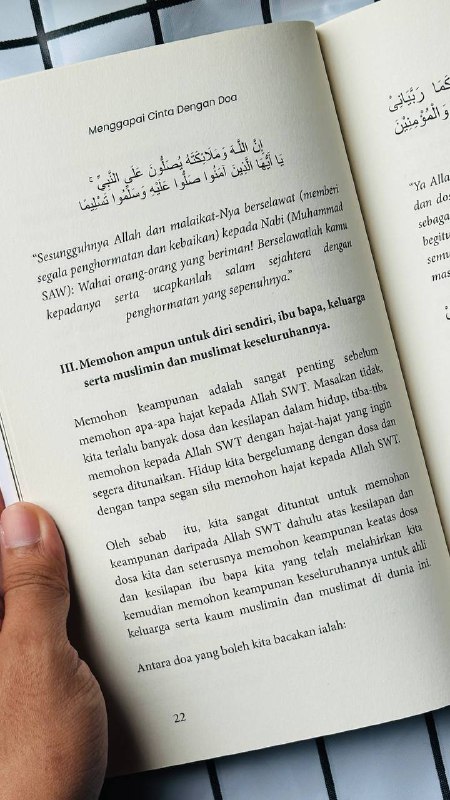 Menggapai Cinta Dengan Doa
إِنَّ اللَّهَ وَمَلَائِكَتَهُ يُصَلُّونَ عَلَى النَّبِيِّ ۚ
يَا أَيُّهَا الَّذِينَ آمَنُوا صَلُّوا عَلَيْهِ وَسَلِّمُوا تَسْلِيمًا
“Sesungguhnya Allah dan malaikat-Nya berselawat (memberi
segala penghormatan dan kebaikan) kepada Nabi (Muhammad
SAW): Wahai orang-orang yang beriman! Berselawatlah kamu
kepadanya serta ucapkanlah salam sejahtera dengan
penghormatan yang sepenuhnya.”
III. Memohon ampun untuk diri sendiri, ibu bapa, keluarga
serta muslimin dan muslimat keseluruhannya.
Memohon keampunan adalah sangat penting sebelum
memohon apa-apa hajat kepada Allah SWT. Masakan tidak,
kita terlalu banyak dosa dan kesilapan dalam hidup, tiba-tiba
memohon kepada Allah SWT dengan hajat-hajat yang ingin
segera ditunaikan. Hidup kita bergelumang dengan dosa dan
dengan tanpa segan silu memohon hajat kepada Allah SWT.
Oleh sebab itu, kita sangat dituntut untuk memohon
keampunan daripada Allah SWT dahulu atas kesilapan dan
dosa kita dan seterusnya memohon keampunan keatas dosa
dan kesilapan ibu bapa kita yang telah melahirkan kita
kemudian memohon keampunan keseluruhannya untuk ahli
keluarga serta kaum muslimin dan muslimat di dunia ini.
Antara doa yang boleh kita bacakan ialah:
22
كَمَا رَبَّيَانِيْ
وَالْمُؤْمِنِيْنَ
“Ya Alla
dan dos
sebaga
begitu
semu
mas